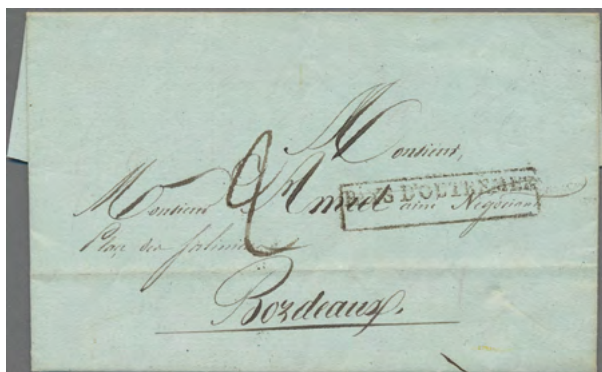 Monsieur,
Monsieur Amiel aîné Négociant
PAYS D'OUTREMER
Place des Salinières
2
Bordeaux.